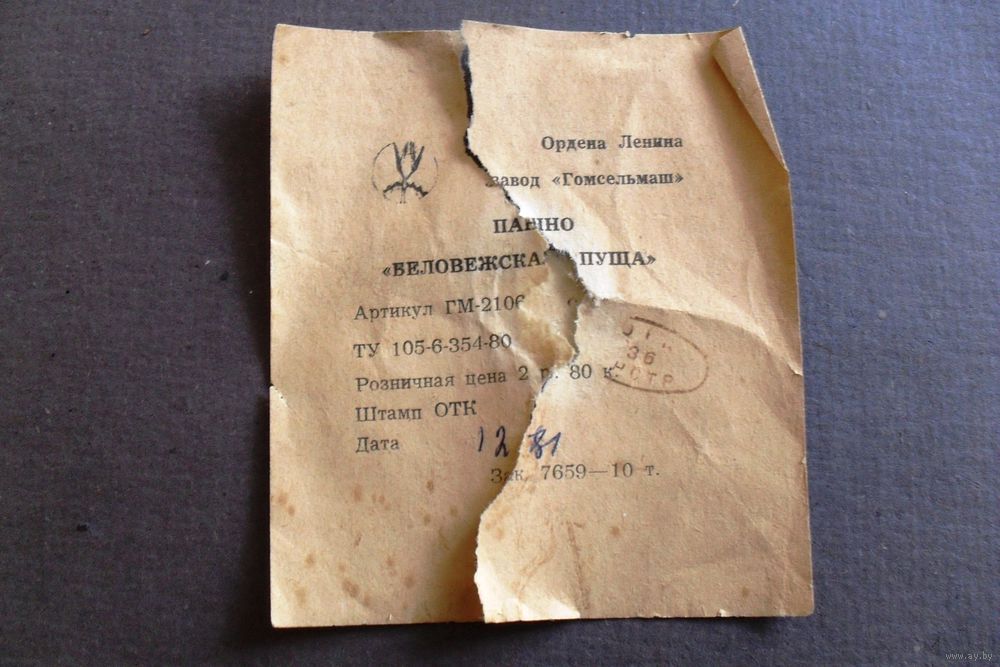 Ордена Ленина
завод «Гомсельмаш»
ПАННО
«БЕЛОВЕЖСКАЯ ПУЩА»
Артикул ГМ-2106
ТУ 105-6-354-80
Розничная цена 2 р. 80 к.
Штамп ОТК
Дата 12 81
Зак. 7659—10 т.
ОТК
36
www.ay.by